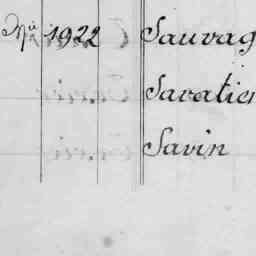 1922 Sauvag
Savatier
Savin